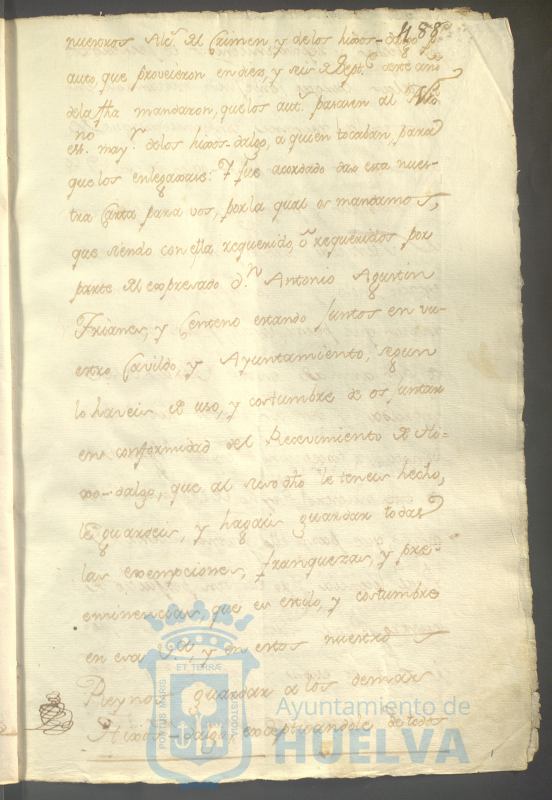 488
nuestros Alc.s del Crimen y de los hixos-dalgo
auto, que proveieron en diez, y seis de Sept.e de este año
de la fha mandaron, que los aut.s pasasen al
ess.no may.r de los hixos-dalgo, a quien tocaban, para
que los entregase: Y fue acordado dar esta nues-
tra Carta para vos, por la qual os mandamos,
que siendo con ella requerido, o requeridos por
parte del expresado d.n Antonio Agustin
Trianes, y Centeno estando juntos en vu-
estro Cavildo, y Ayuntamiento, segun
lo haveis de uso, y costumbre de os juntar
en conformidad del Recevimiento de Hi-
xo-dalgo, que al suso dho le teneis hecho,
le guardeis, y hagais guardar todas
las exempciones, franquezas, y pre-
eminencias, que es estilo, y costumbre
en esa y en estos nuestros
Reynos guardar a los demas
Hixos-dalgo exceptuandole de todos
PORTUS MARIS ET TERRÆ CUSTODIA
Ayuntamiento de
HUELVA